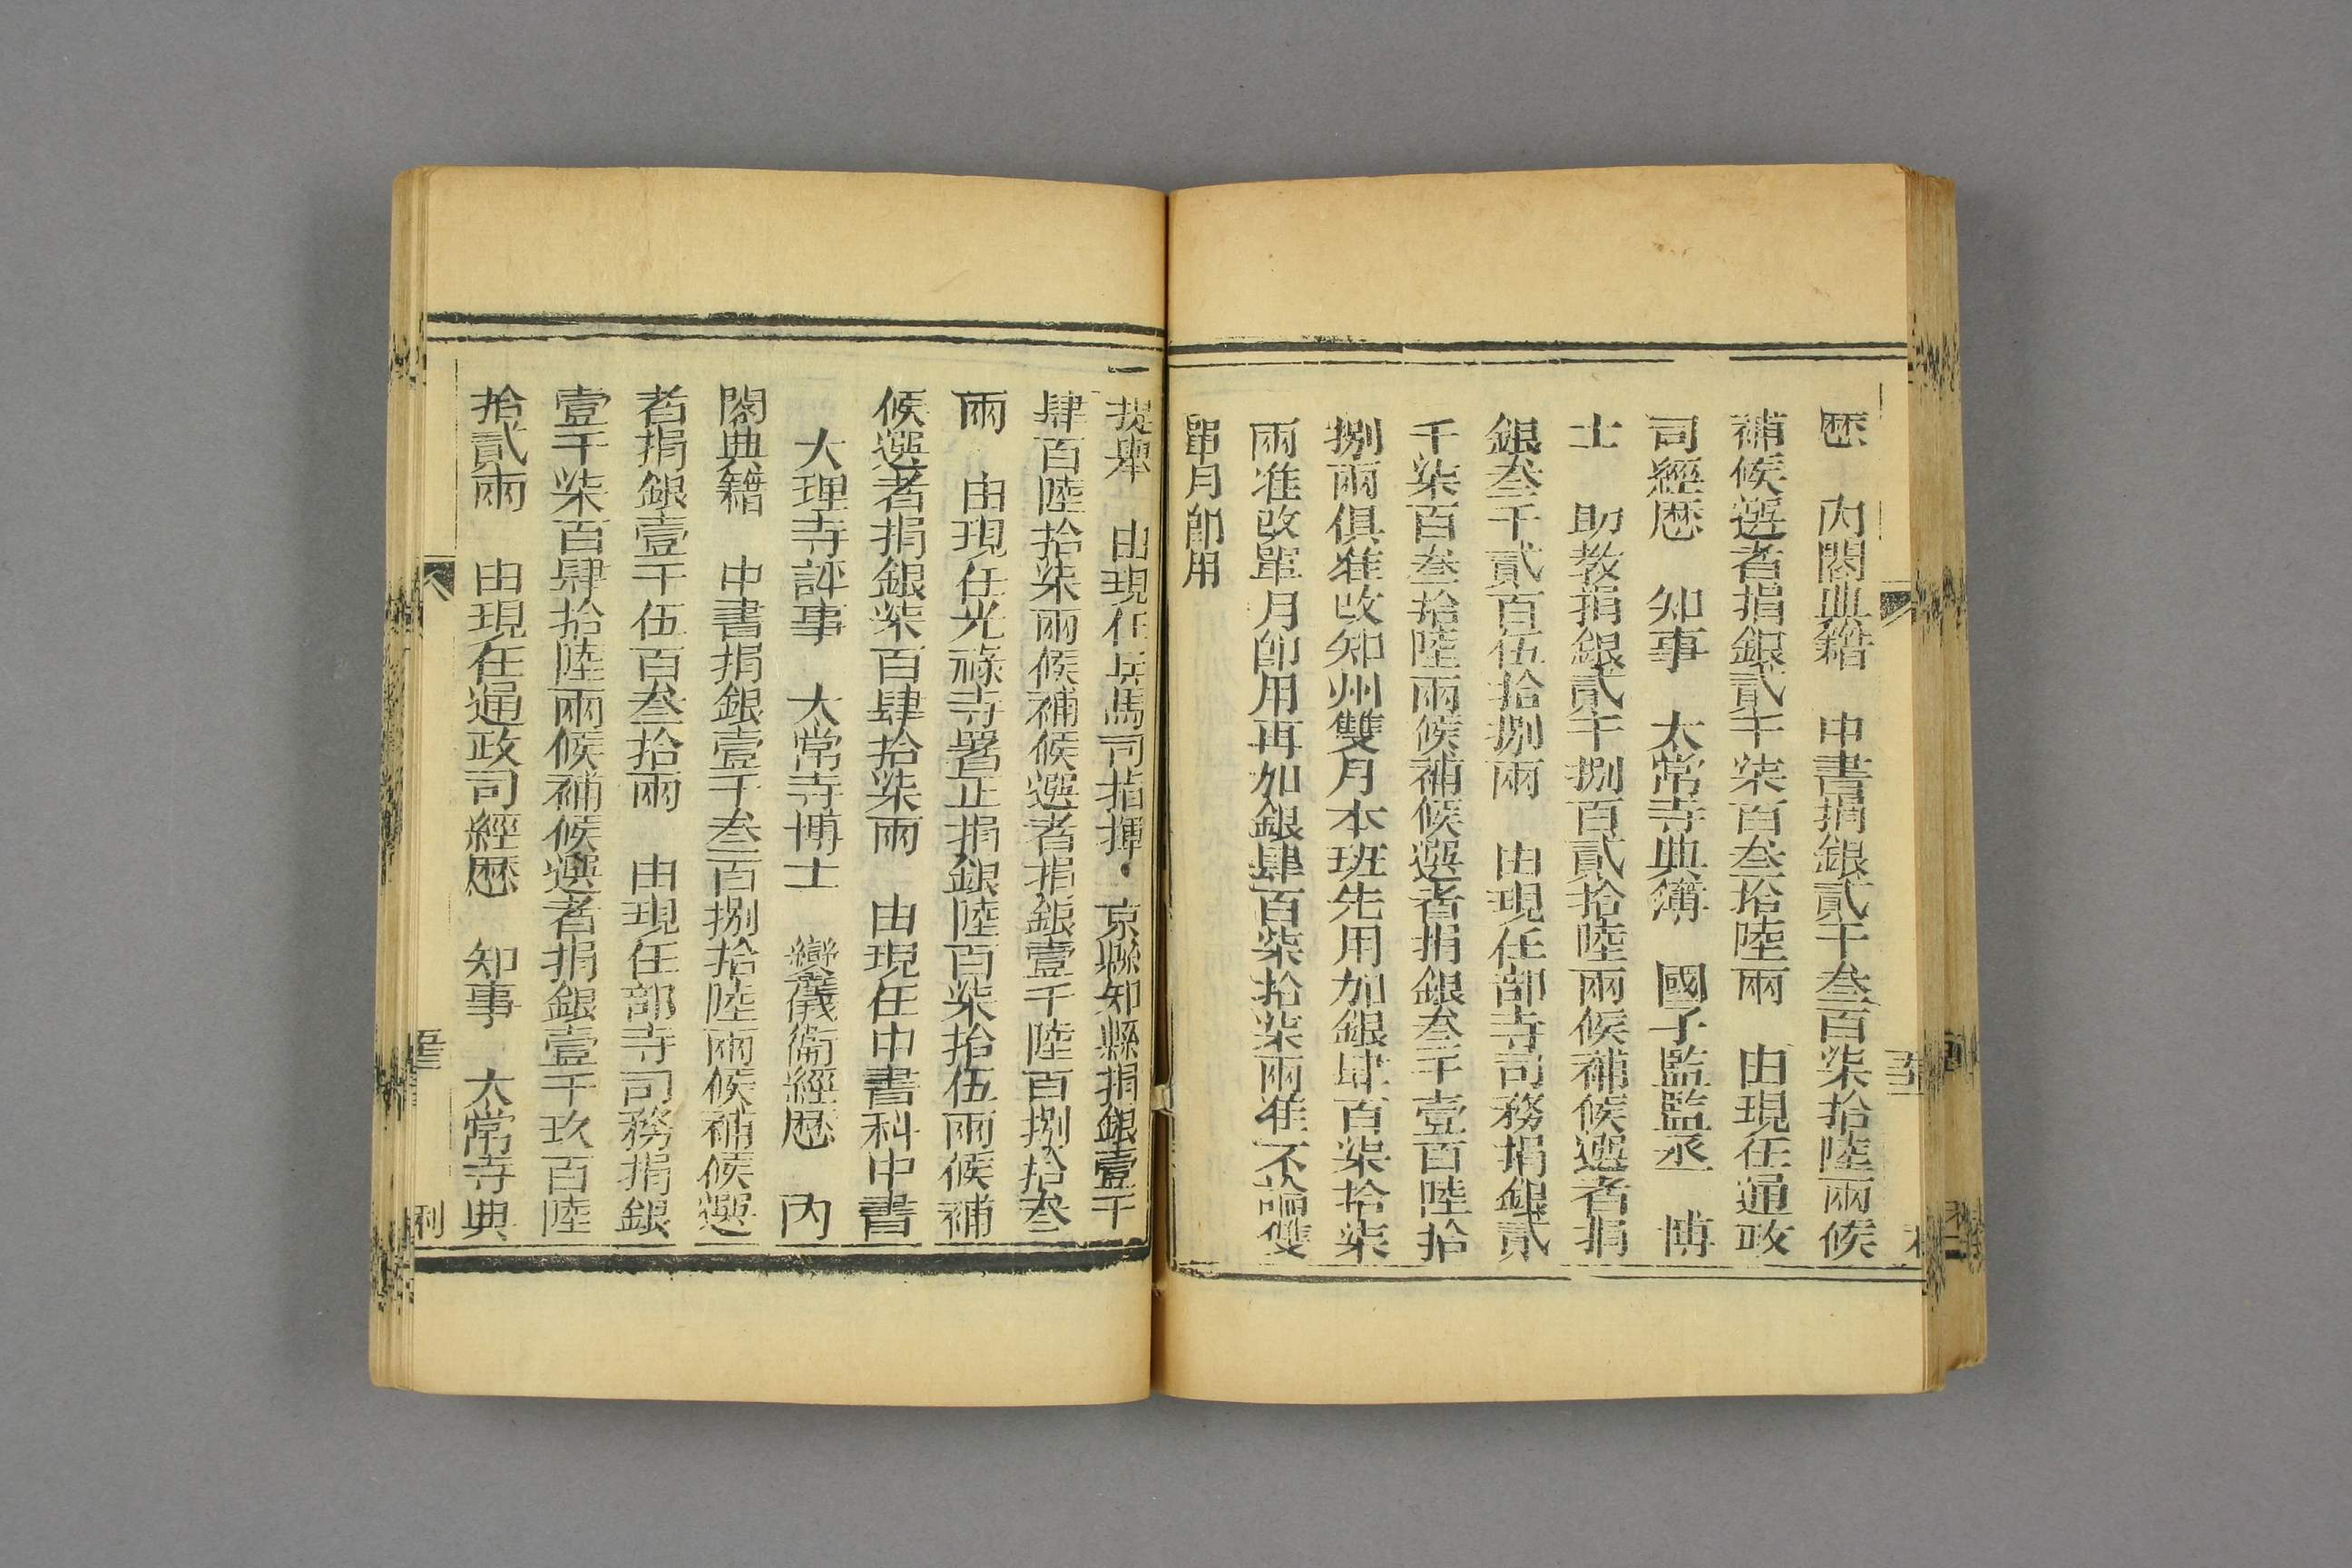 歷　內閣典籍　中書捐銀貳千叁百柒拾陸兩候
補候選者捐銀貳千柒百叁拾陸兩　由現任通政
司經歷　知事　太常寺典簿　國子監監丞　博
士　助教捐銀貳千捌百貳拾陸兩候補候選者捐
銀叁千貳百伍拾捌兩　由現任部寺司務捐銀貳
千柒百叁拾陸兩候補候選者捐銀叁千壹百陸拾
捌兩俱准改知州雙月本班先用加銀肆百柒拾柒
兩准改單月卽用再加銀肆百柒拾柒兩准不論雙
單月卽用
一提舉　由現任兵馬司指揮　京縣知縣捐銀壹千
肆百陸拾柒兩候補候選者捐銀壹千陸百捌拾叁
兩　由現任光祿寺署正捐銀陸百柒拾伍兩候補
候選者捐銀柒百肆拾柒兩　由現任中書科中書
大理寺評事　太常寺博士　鑾儀衞經歷　內
閣典籍　中書捐銀壹千叁百捌拾陸兩候補候選
者捐銀壹千伍百叁拾兩　由現任部寺司務捐銀
壹千柒百肆拾陸兩候補候選者捐銀壹千玖百陸
拾貳兩　由現任通政司經歷　知事　太常寺典